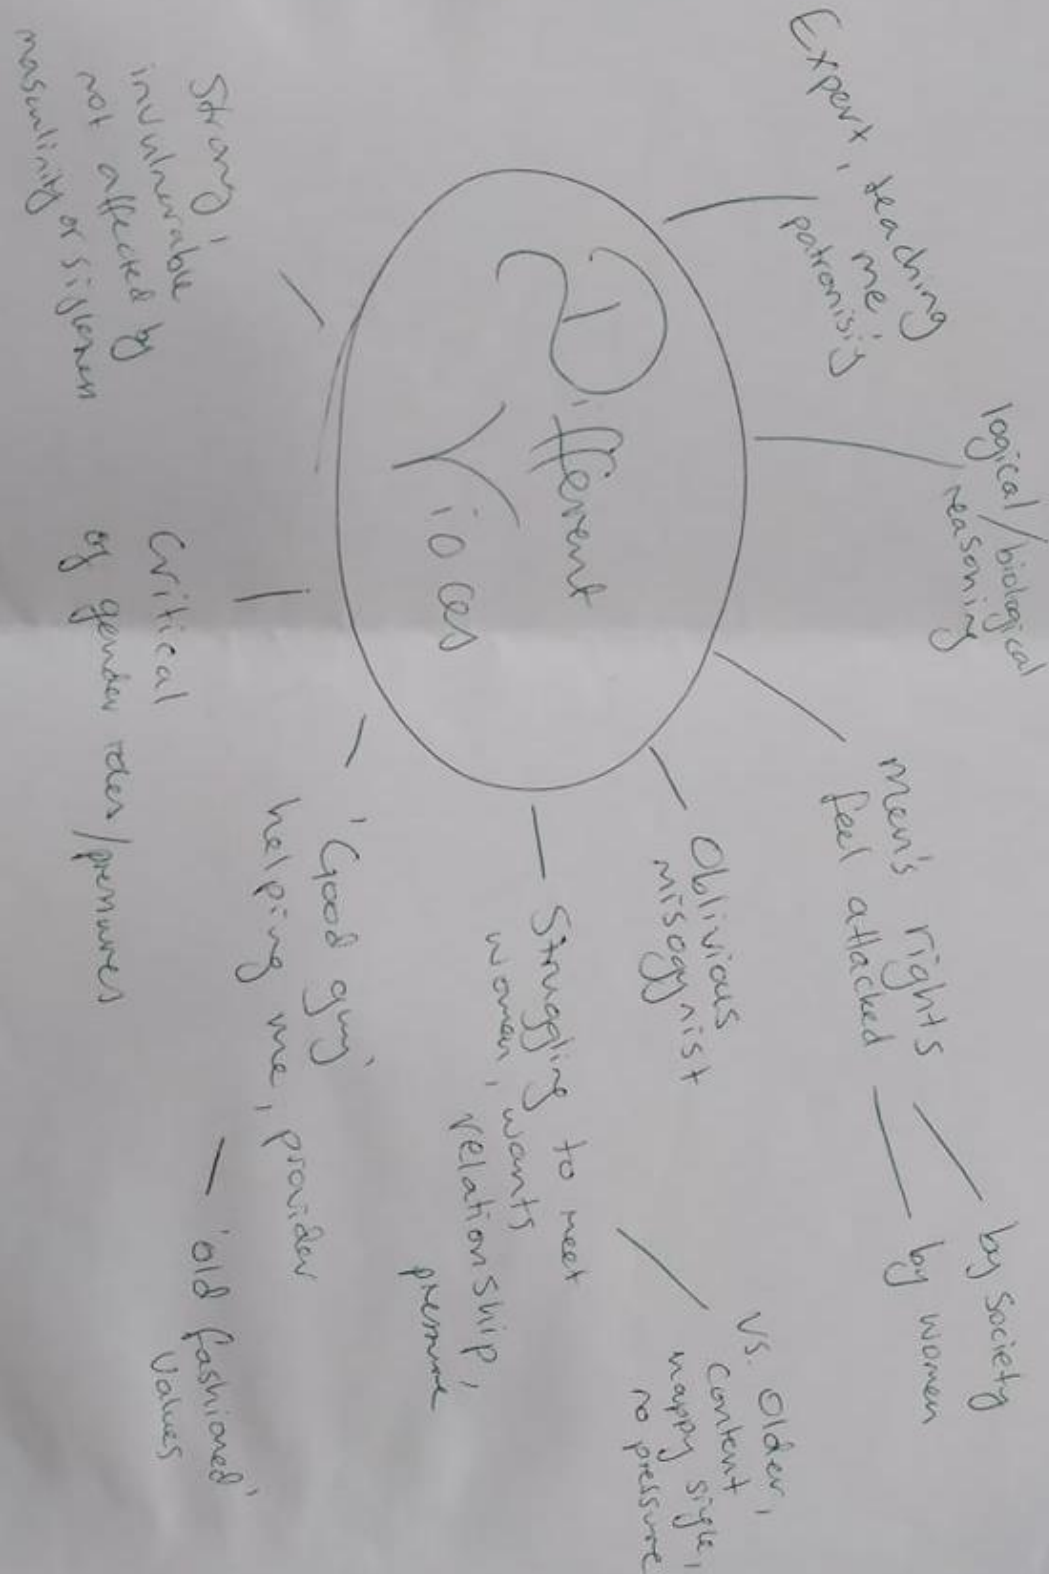 Different
Vioces
Expert, teaching
me,
patronisig
logical/biological
reasoning
men's rights
feel attacked
by society
by women
Oblivious
misogynist
Struggling to meet
women, wants
relationship,
pressure
vs. Older,
content
happy single,
no pressure
'Good guy'
helping me, provider
'old fashioned'
values
Critical
of gender roles/pressures
Strong,
invulnerable
not affected by
masculinity or sigleness